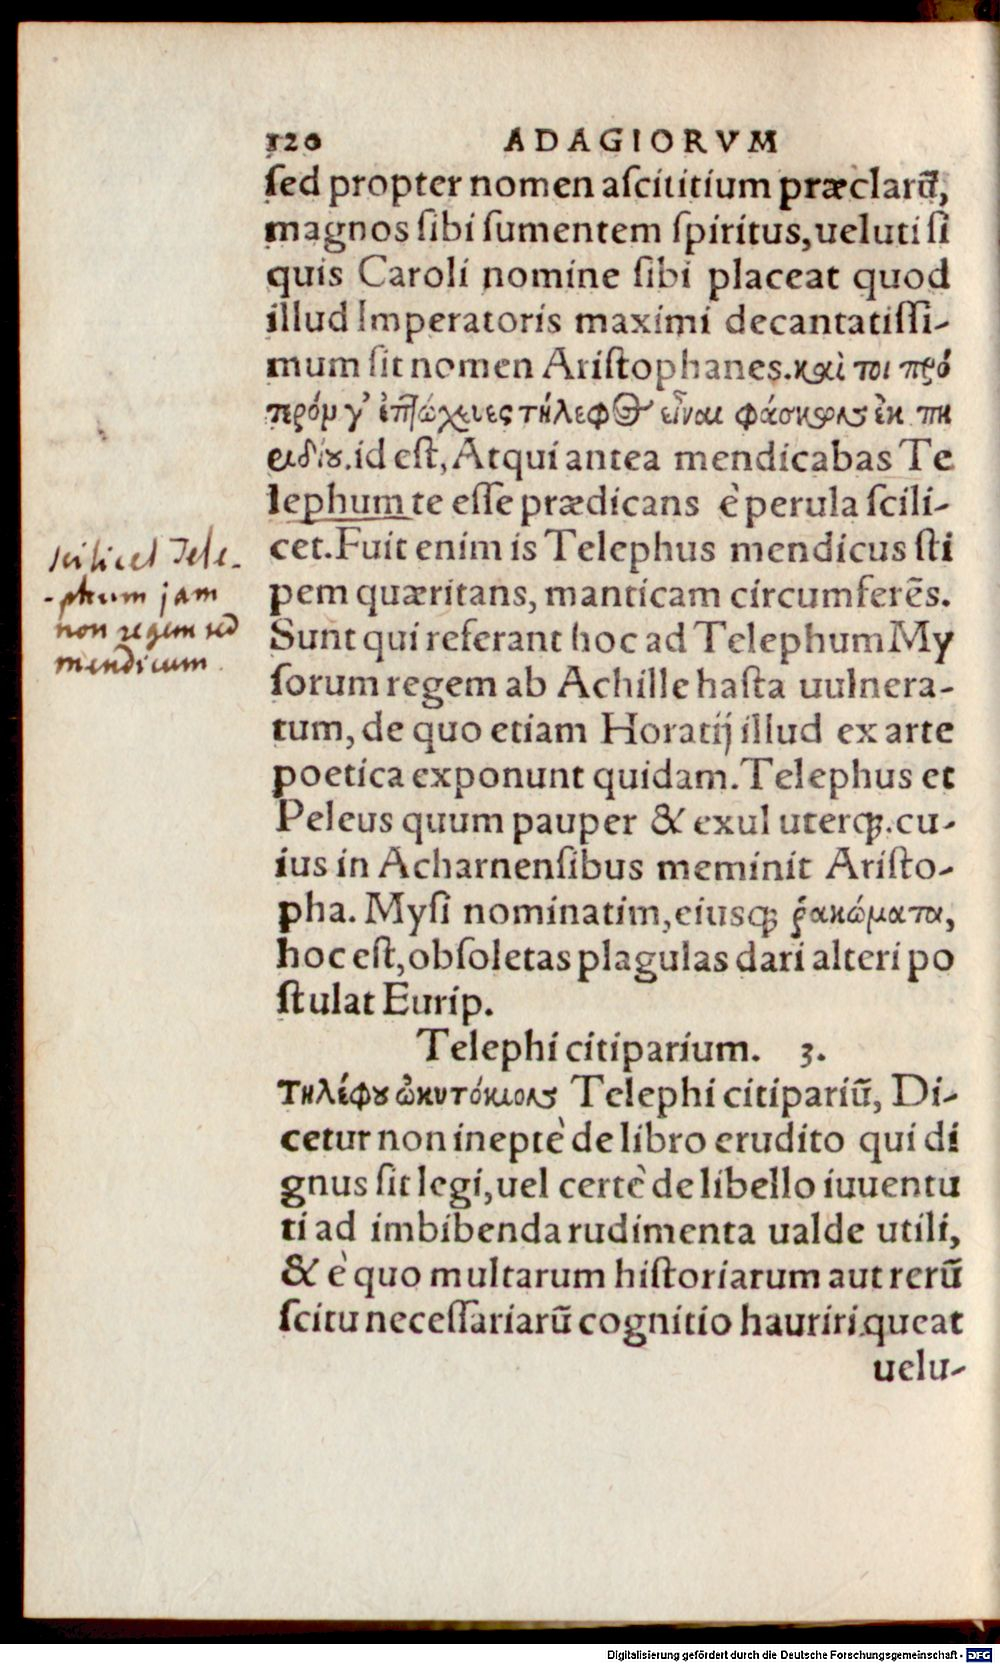 120 ADAGIORVM
sed propter nomen ascititium præclarū,
magnos sibi sumentem spiritus, ueluti si
quis Caroli nomine sibi placeat quod
illud Imperatoris maximi decantatissi-
mum sit nomen Aristophanes. καὶ τοι πρό
τερόν γ' ἐπτώχευες τήλεφος εἶναι φάσκων ἐκ πη
ειδίου. id est, Atqui antea mendicabas Te
lephum te esse prædicans è perula scili-
cet. Fuit enim is Telephus mendicus sti
pem quæritans, manticam circumferēs.
Sunt qui referant hoc ad Telephum My
sorum regem ab Achille hasta uulnera-
tum, de quo etiam Horatij illud ex arte
poetica exponunt quidam. Telephus et
Peleus quum pauper & exul uterq;. cu-
ius in Acharnensibus meminit Aristo-
pha. Mysi nominatim, eiusq; ῥακώματα,
hoc est, obsoletas plagulas dari alteri po
stulat Eurip.
Telephi citiparium. 3.
Τηλέφου ὠκυτόκιον Telephi citipariū, Di-
cetur non ineptè de libro erudito qui di
gnus sit legi, uel certè de libello iuuentu
ti ad imbibenda rudimenta ualde utili,
& è quo multarum historiarum aut rerū
scitu necessariarū cognitio hauriri queat
uelu-
scilicet Tele-
-phum jam
non regem sed
mendicum.
Digitalisierung gefördert durch die Deutsche Forschungsgemeinschaft - DFG